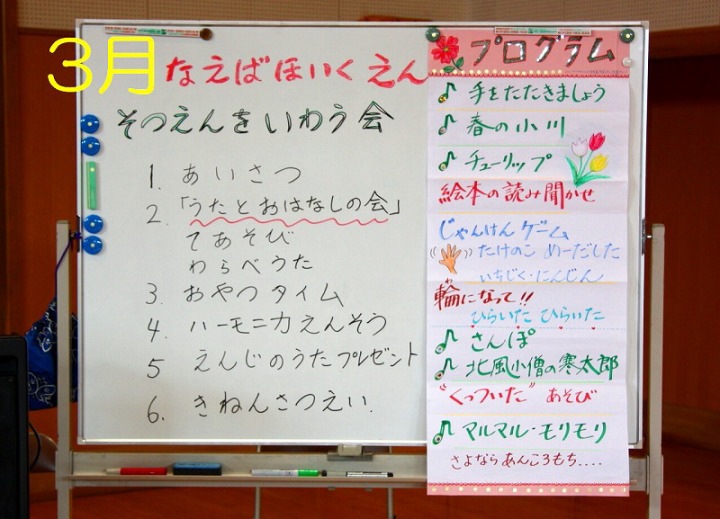 3月
なえばほいくえん
そつえんをいわう会
1. あいさつ
2. 「うたとおはなしの会」
てあそび
わらべうた
3. おやつタイム
4. ハーモニカえんそう
5 えんじのうたプレゼント
6. きねんさつえい.
プログラム
♪ 手をたたきましょう
♪ 春の小川
♪ チューリップ
絵本の読み聞かせ
じゃんけんゲーム
たけのこ めーだした
いちじく・にんじん
輪になって!!
ひらいた ひらいた
♪ さんぽ
♪ 北風小僧の寒太郎
"くっついた" あそび
♪ マルマル・モリモリ
さよならあんころもち....